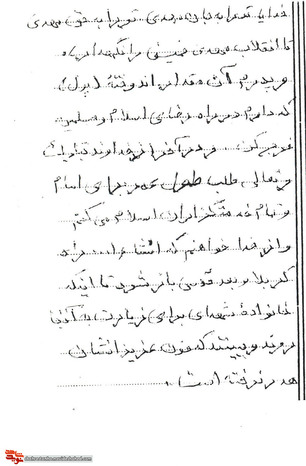 خدایا تو را به حق مهدی
تا انقلاب مهدی خمینی را نگهدار
و پدرم آن مقدار اندوخته (پول)
که دارم در راه رضای اسلام و مسلمین
خرج کن و در آخر از خداوند تبارک
و تعالی طلب طول عمر برای امام
و تمام خدمتگزاران اسلام می کنم
و از خدا خواهم که انشاءالله راه
کربلا و بعد قدس باز شود تا اینکه
خانواده شهدای برای زیارت به آنجا
بروند و ببینند که خون عزیزانشان
هدر نرفته است.